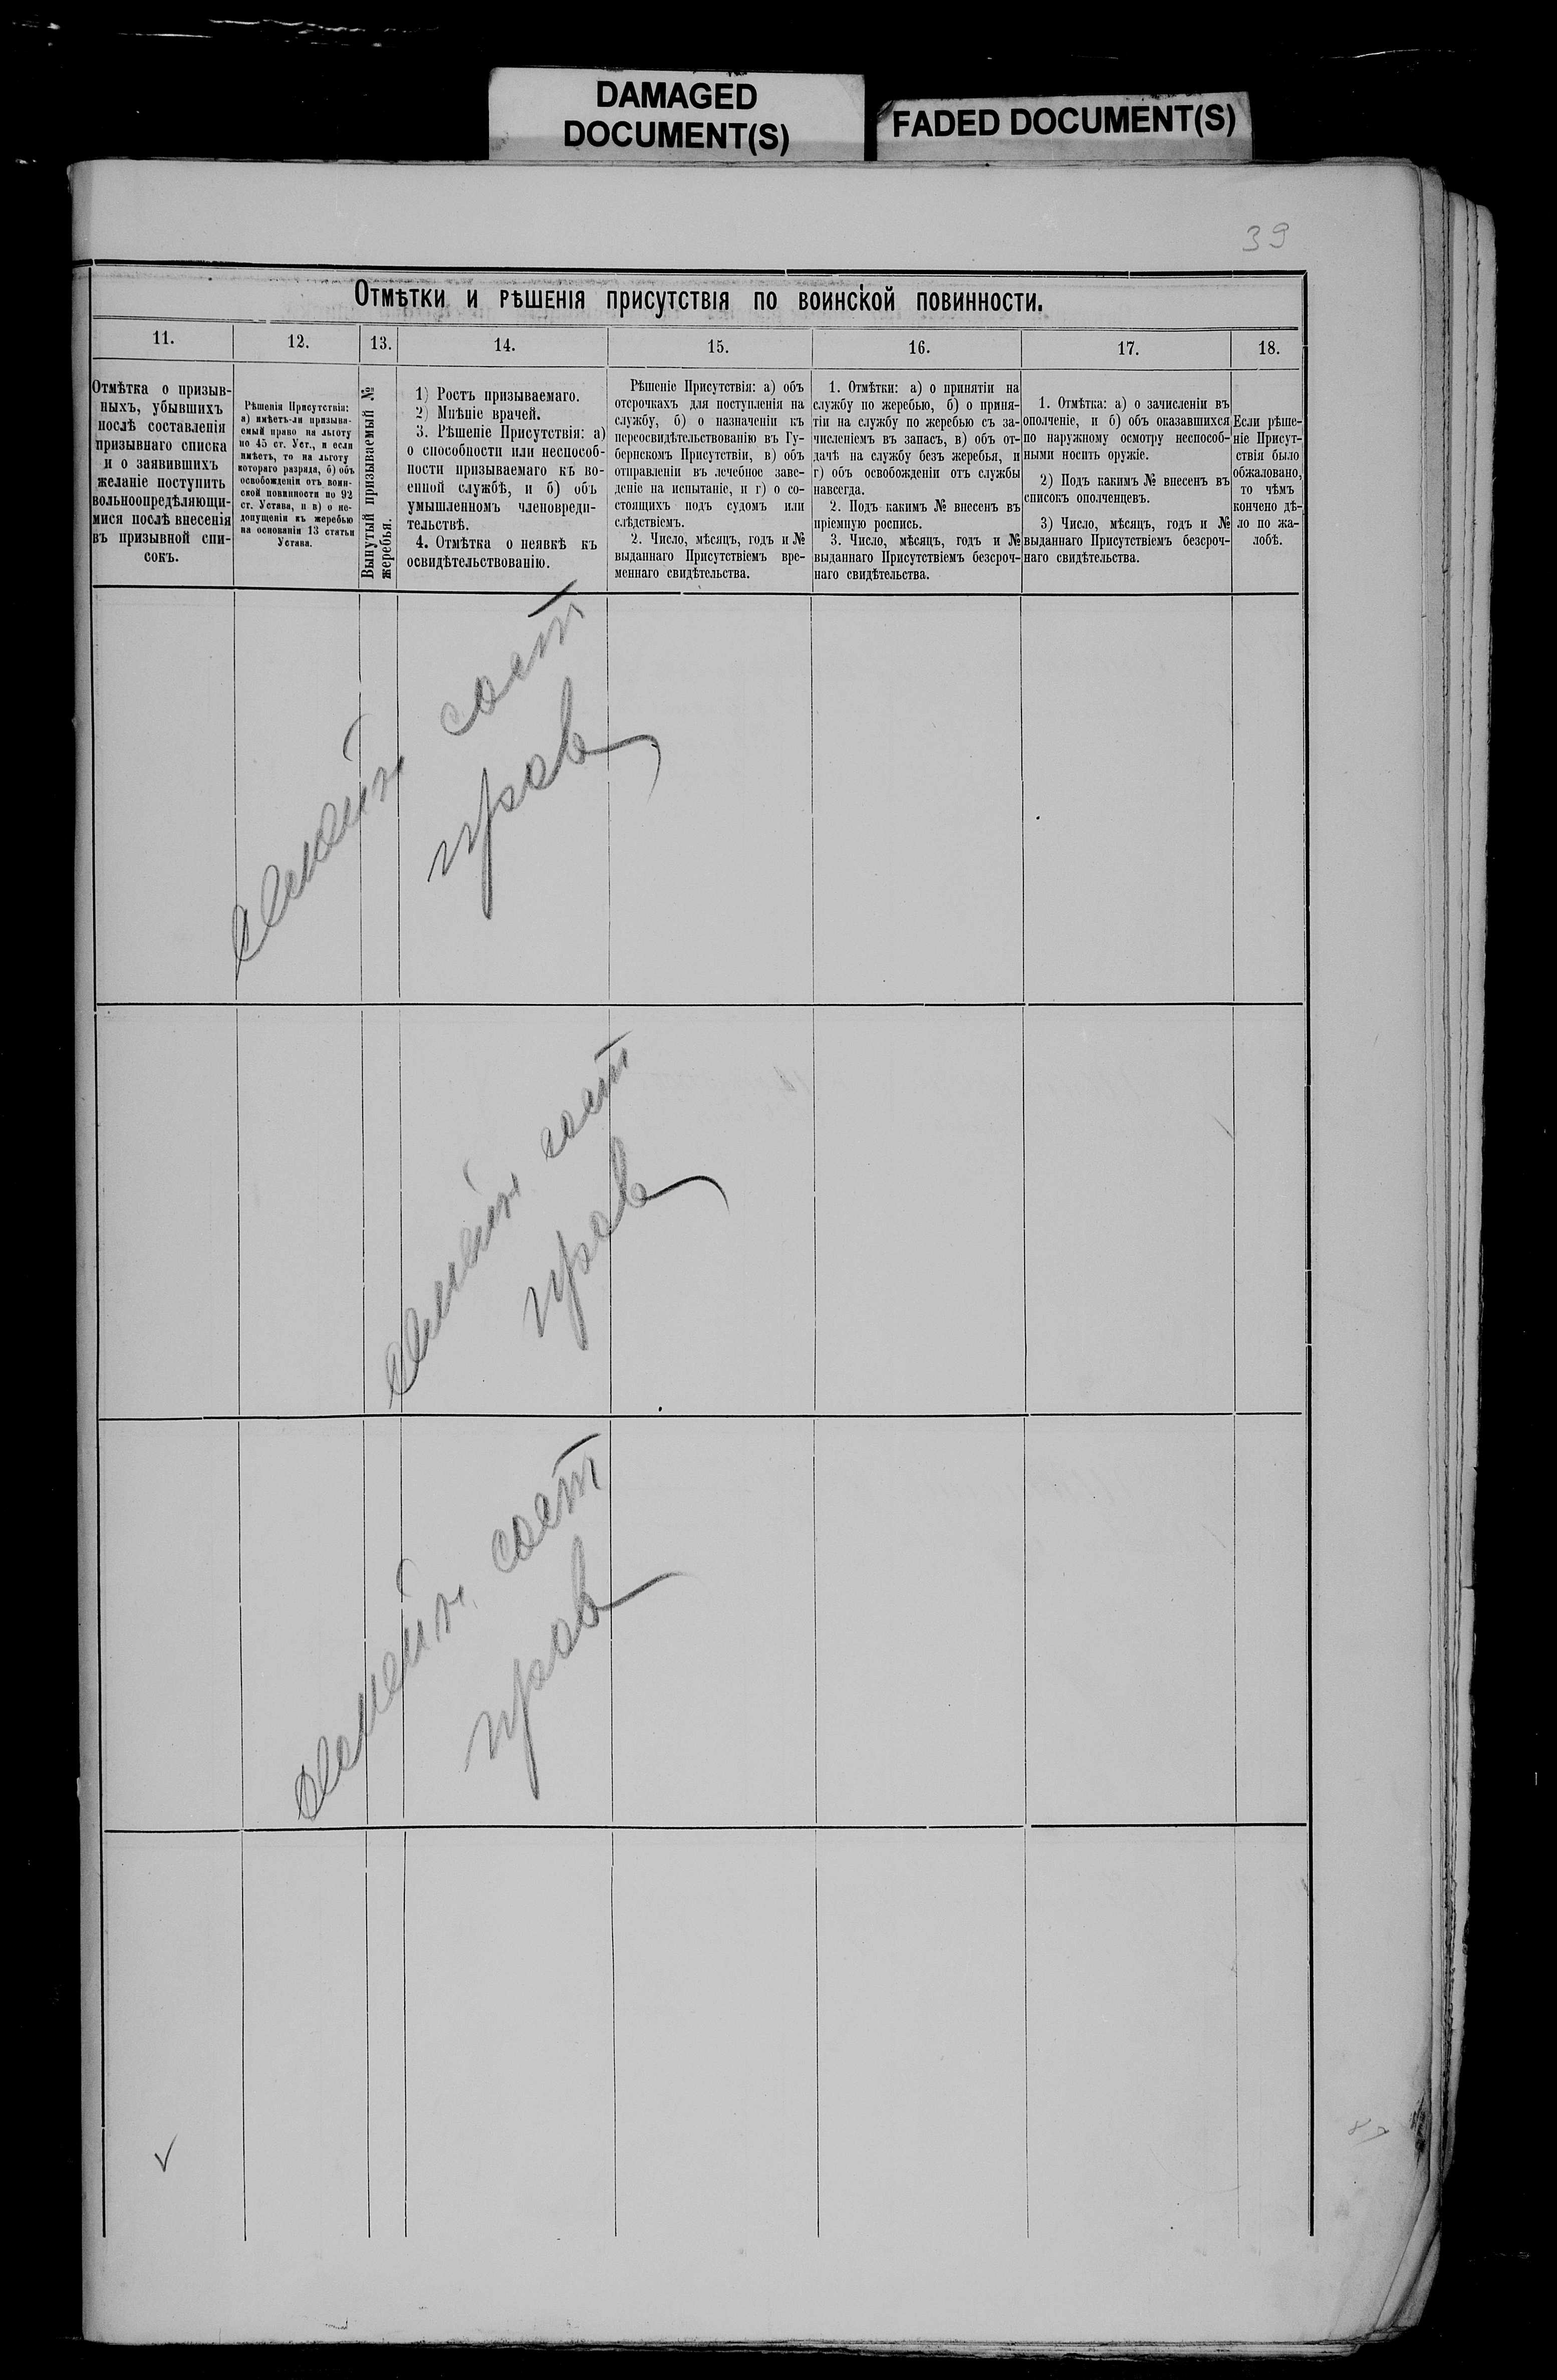 DAMAGED
DOCUMENT(S)
FADED DOCUMENT(S)
39
Отмѣтки и рѣшенія присутствія по воинской повинности.
11.
12.
13.
14.
15.
16.
17.
18.
Отмѣтка о призыв-
ныхъ, убывшихъ
послѣ составленія
призывнаго списка
и о заявившихъ
желаніе поступить
вольноопредѣляющи-
мися послѣ внесенія
въ призывной спи-
сокъ.
Рѣшенія Присутствія:
а) имѣетъ-ли призыва-
емый право на льготу
по 45 ст. Уст., и если
имѣетъ, то на льготу
котораго разряда, б) объ
освобожденіи отъ воин-
ской повинности по 92
ст. Устава, и в) о не-
допущеніи къ жеребью
на основаніи 13 статьи
Устава.
Вынутый призываемый №
жеребья.
1) Ростъ призываемаго.
2) Мнѣніе врачей.
3. Рѣшеніе Присутствія: а)
о способности или неспособ-
ности призываемаго къ во-
енной службѣ, и б) объ
умышленномъ членовреди-
тельствѣ.
4. Отмѣтка о неявкѣ къ
освидѣтельствованію.
Рѣшеніе Присутствія: а) объ
отсрочкахъ для поступленія на
службу, б) о назначеніи къ
переосвидѣтельствованію въ Гу-
бернскомъ Присутствіи, в) объ
отправленіи въ лечебное заве-
деніе на испытаніе, и г) о со-
стоящихъ подъ судомъ или
слѣдствіемъ.
2. Число, мѣсяцъ, годъ и №
выданнаго Присутствіемъ вре-
меннаго свидѣтельства.
1. Отмѣтки: а) о принятіи на
службу по жеребью, б) о приня-
тіи на службу по жеребью съ за-
численіемъ въ запасъ, в) объ от-
дачѣ на службу безъ жеребья, и
г) объ освобожденіи отъ службы
навсегда.
2. Подъ какимъ № внесенъ въ
пріемную роспись.
3. Число, мѣсяцъ, годъ и №
выданнаго Присутствіемъ безсроч-
наго свидѣтельства.
1. Отмѣтка: а) о зачисленіи въ
ополченіе, и б) объ оказавшихся
по наружному осмотру неспособ-
ными носить оружіе.
2) Подъ какимъ № внесенъ въ
списокъ ополченцевъ.
3) Число, мѣсяцъ, годъ и №
выданнаго Присутствіемъ безсроч-
наго свидѣтельства.
Если рѣше-
ніе Присут-
ствія было
обжаловано,
то чѣмъ
кончено дѣ-
ло по жа-
лобѣ.
семейн сост
пров
семейн сост
пров
семейн сост
пров